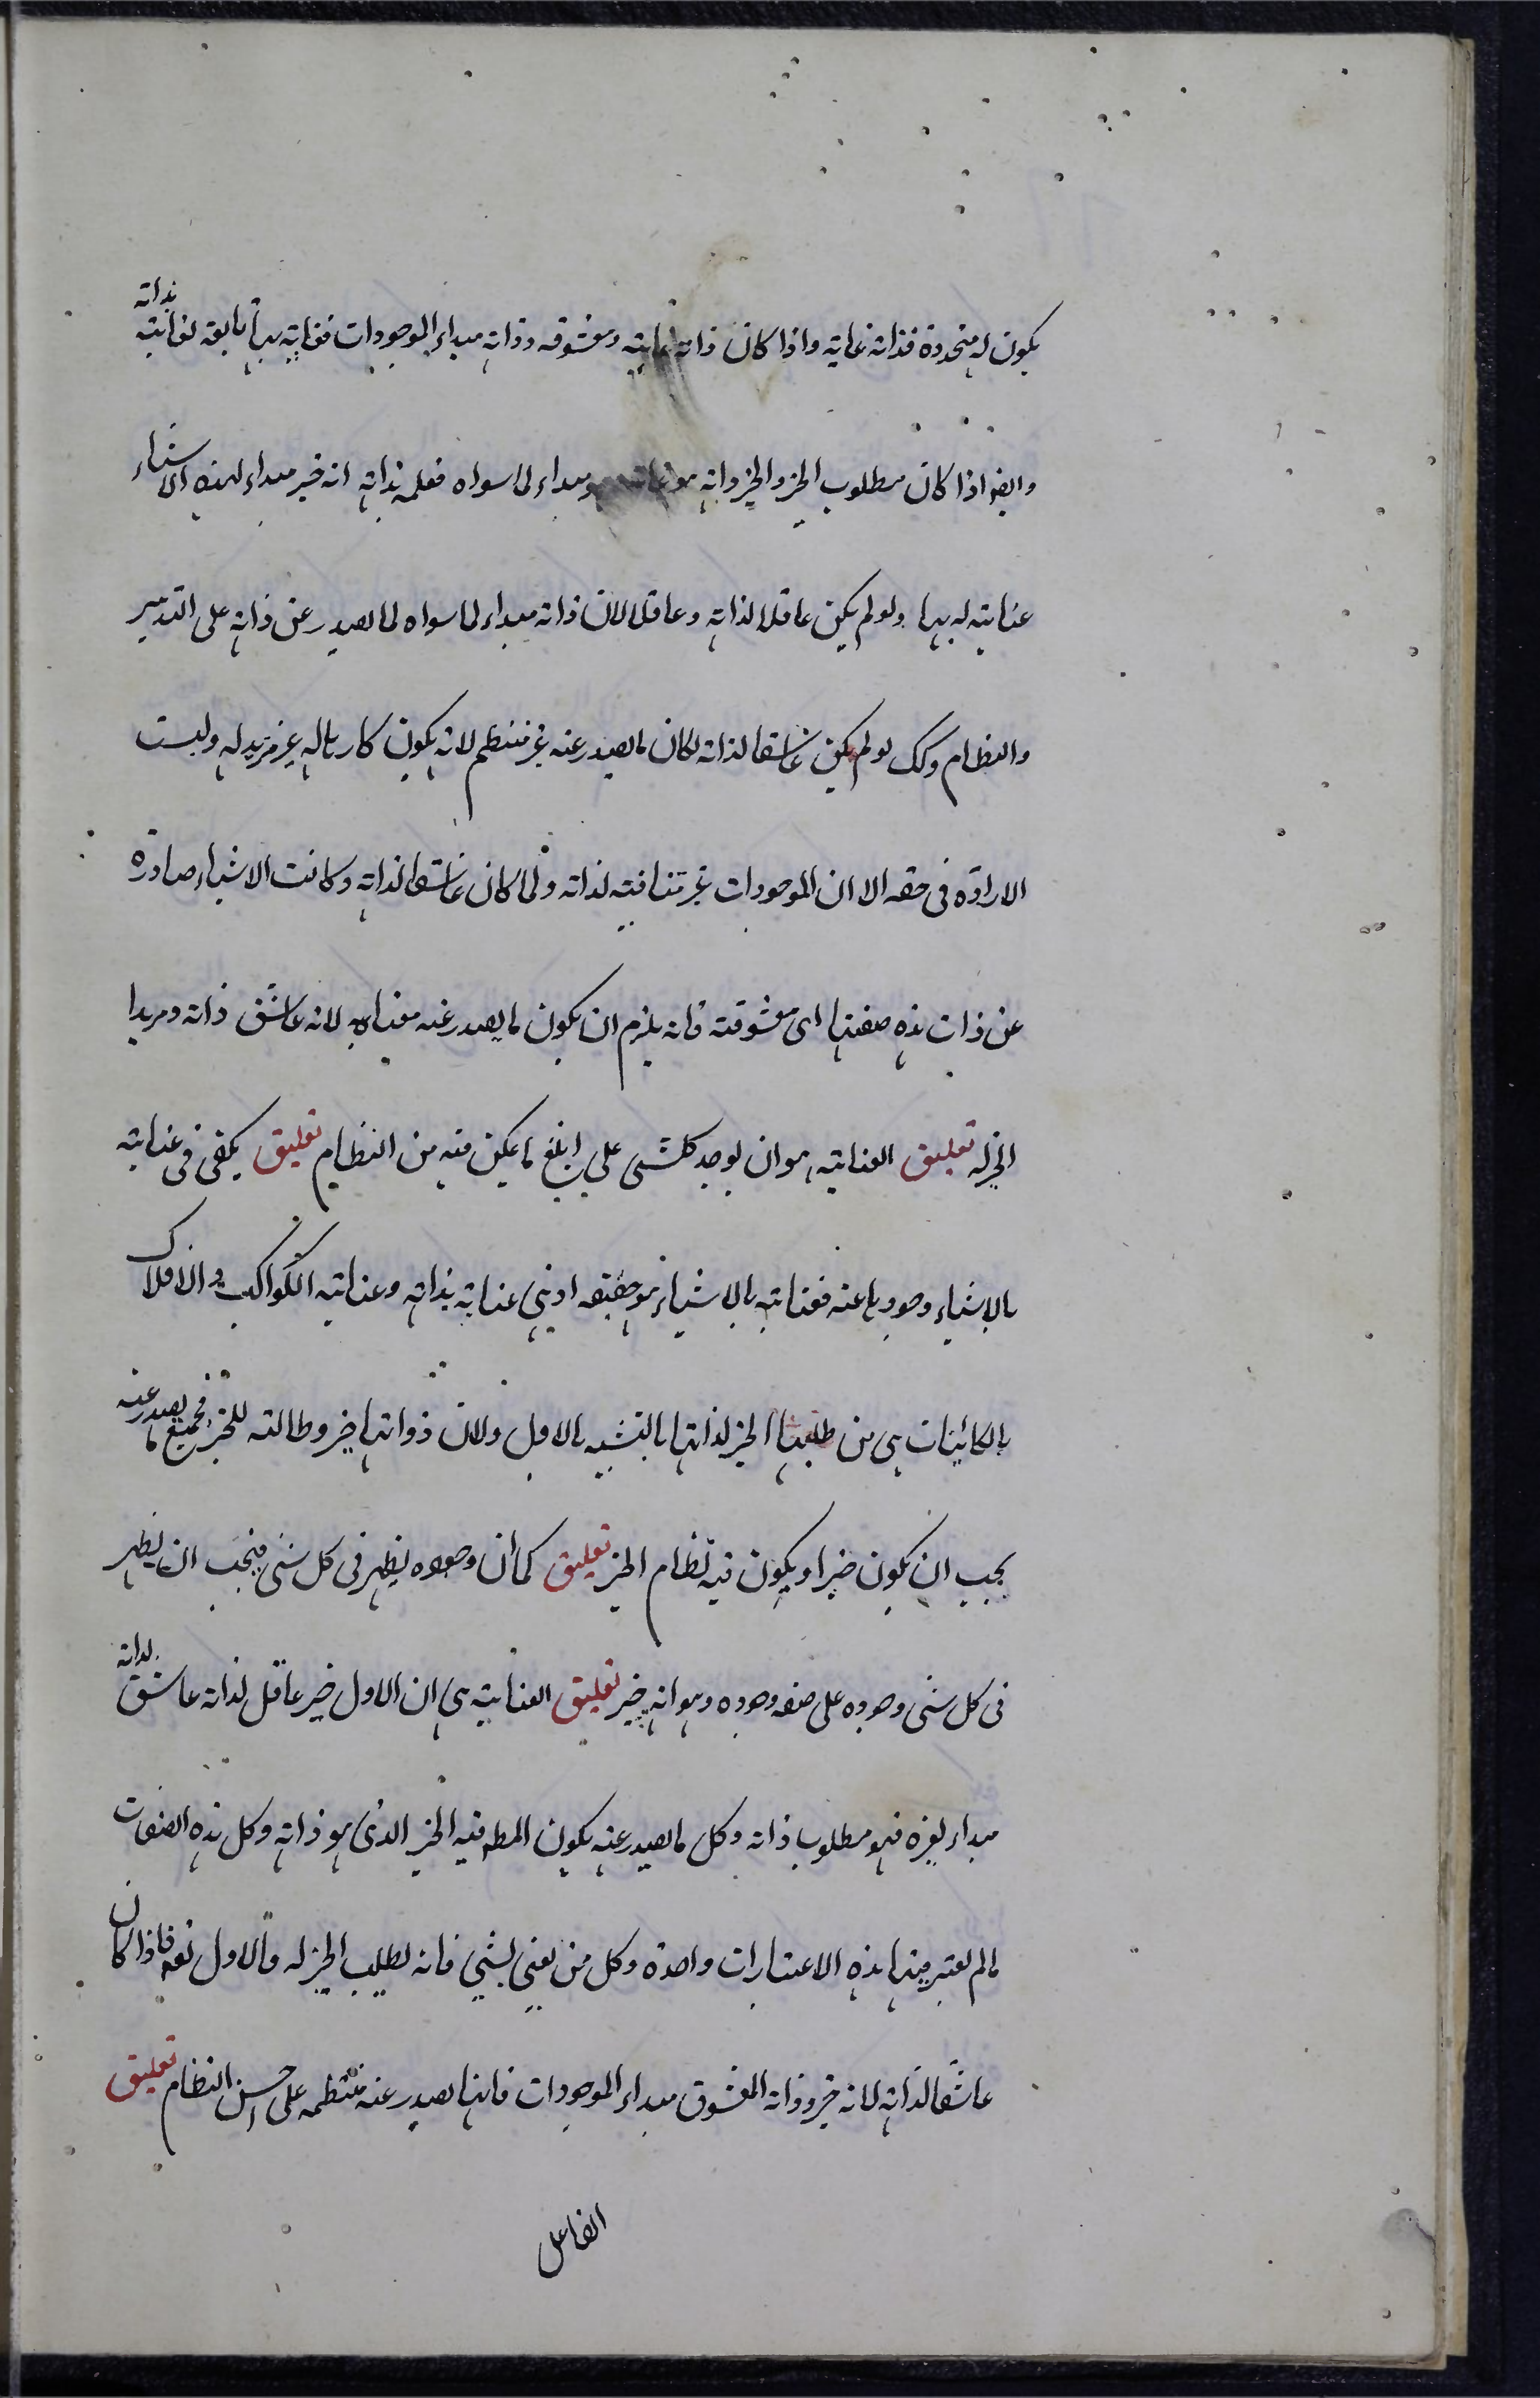 يكون له متجددة فذاته غايته واذا كان ذاته غايته ومعشوقه وذاته مبداء الموجودات فعنايته بها تابعة لعنايته بذاته
وايضا اذا كان مطلوب الخير والخير ذاته هو غايته وهو مبداء لما سواه فعلمه بذاته انه خير مبداء لهذه الاشياء
عنايته له بها ولو لم يكن عاقلا لذاته وعاقلا لان ذاته مبداء لما سواه لما يصدر عن ذاته على التدبير
والنظام وكك لو لم يكن عاشقا لذاته لكان ما يصدر عنه غير منتظم لانه يكون كارها له غير مريد له وليست
الارادة في حقه الا ان الموجودات غير منافية لذاته ولما كان عاشقا لذاته وكانت الاشياء صادرة
عن ذات هذه صفتها اى معشوقته فانه يلزم ان يكون ما يصدر عنه معنيا به لانه عاشق ذاته ومريدا
الخير له تعليق العناية هو ان يوجد كلشى على ابلغ ما يمكن فيه من النظام تعليق يكفى فى عنايته
بالاشياء وجودها عنه فعنايته بالاشياء هو حقيقة اذ هى عنايته بذاته وعناية الكواكب والافلاك
بالكائنات هى من طلبها الخير لذاتها بالتشبه بالاول ولان ذواتها خير وطالبة للخير فجميع ما يصدر عنه
يجب ان يكون خيرا ويكون فيه نظام الخير تعليق كما ان وجوده يظهر فى كل شى فيجب ان يظهر
فى كل شى وجوده على صفة وجوده وهو انه خير تعليق العناية هى ان الاول خير عاقل لذاته عاشق لذاته
مبداء لغيره فهو مطلوب ذاته وكل ما يصدر عنه يكون المط فيه الخير الذى هو ذاته وكل هذه الصفات
ما لم يعتبر فيها هذه الاعتبارات واحدة وكل من يعنى بشى فانه يطلب الخير له والاول تعه فاذا كان
عاشقا لذاته لانه خير وذاته المعشوق مبداء الموجودات فانها يصدر عنه منتظمه على احسن النظام تعليق
الفاعل